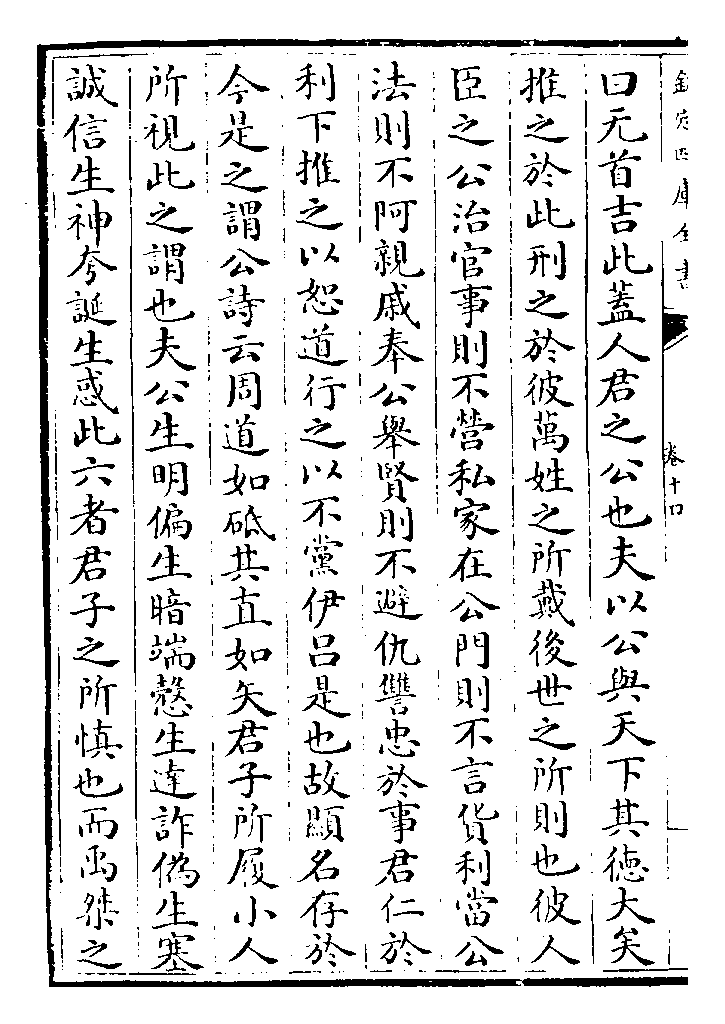 欽定四庫全書
卷十四
曰无首吉此蓋人君之公也夫以公與天下其德大矣
推之於此刑之於彼萬姓之所戴後世之所則也彼人
臣之公治官事則不營私家在公門則不言貨利當公
法則不阿親戚奉公舉賢則不避仇讐忠於事君仁於
利下推之以恕道行之以不黨伊吕是也故顯名存於
今是之謂公詩云周道如砥其直如矢君子所履小人
所視此之謂也夫公生明偏生暗端慤生達詐偽生塞
誠信生神夸誕生惑此六者君子之所慎也而禹桀之